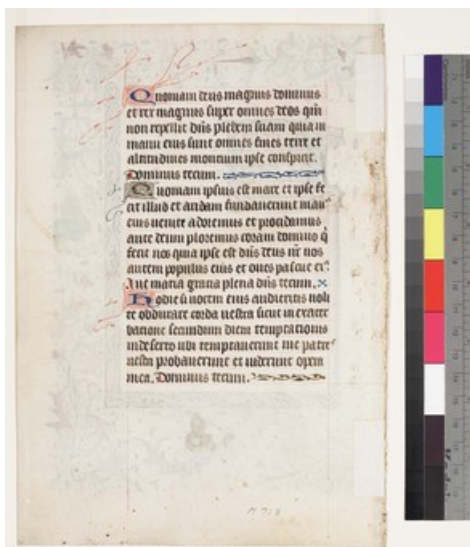 Quoniam deus magnus dominus
et rex magnus super omnes deos qm̄
non repellit dn̄s plebem suam quia in
manu eius sunt omnes fines terre et
altitudines moncium ipse conspicit.
Dominus tecum.
Quoniam ipsius est mare et ipse fe
cit illud et aridam fundaverunt man⁹
eius venite adoremus et procidamus
ante deum ploremus coram domino q̄
fecit nos quia ipse est dn̄s deus nr̄ nos
autem populus eius et oves pascue ei⁹
Ave maria gracia plena dn̄s tecum.
Hodie si vocem eius audieritis noli
te obdurare corda vestra sicut in exacer
bacione secundum diem temptacionis
in deserto ubi temptaverunt me patres
vestri probaverunt et viderunt opera
mea. Dominus tecum.